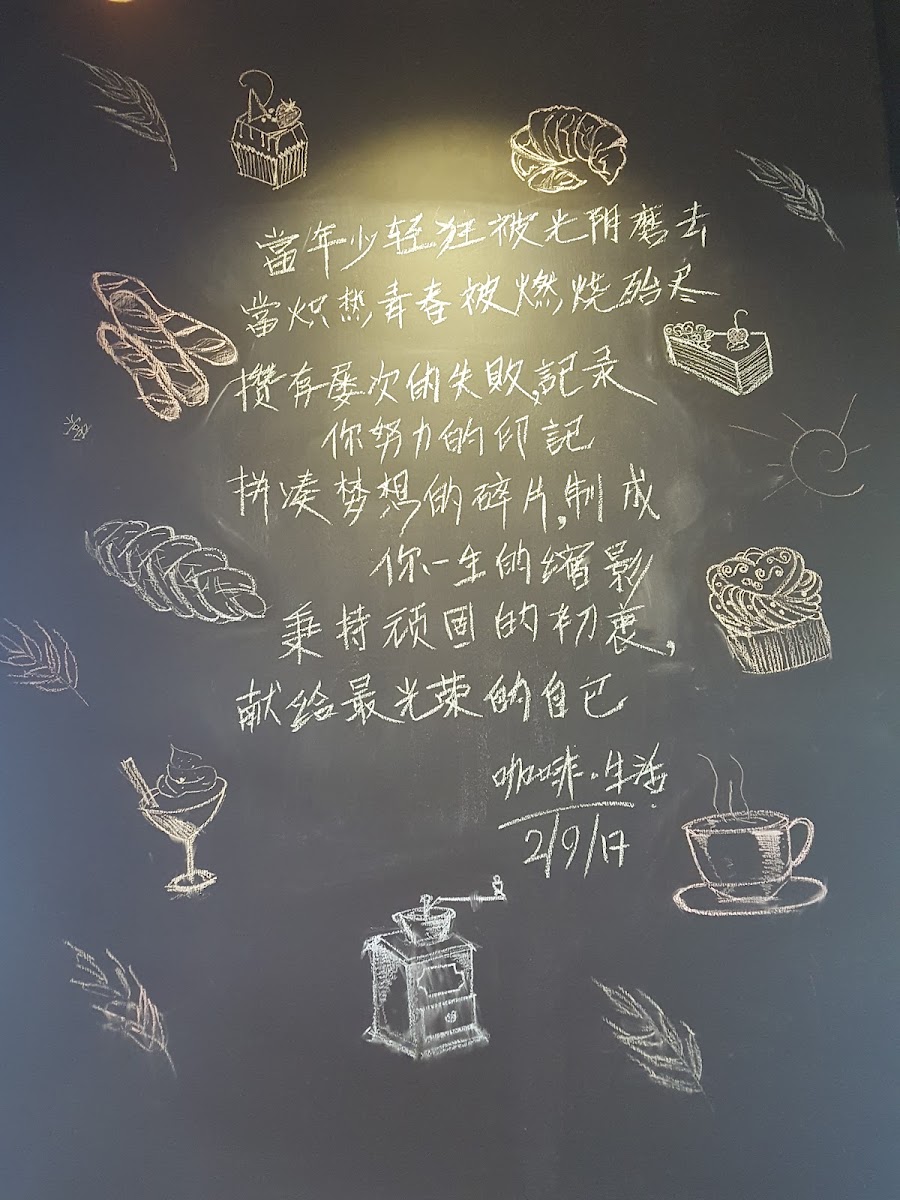 當年少轻狂被光阴磨去
當炽热青春被燃烧殆尽
攒存屡次的失败,記录
你努力的印記
拼凑梦想的碎片,制成
你一生的缩影
秉持顽固的初衷,
献给最光荣的自己
咖啡·生活
2/9/17